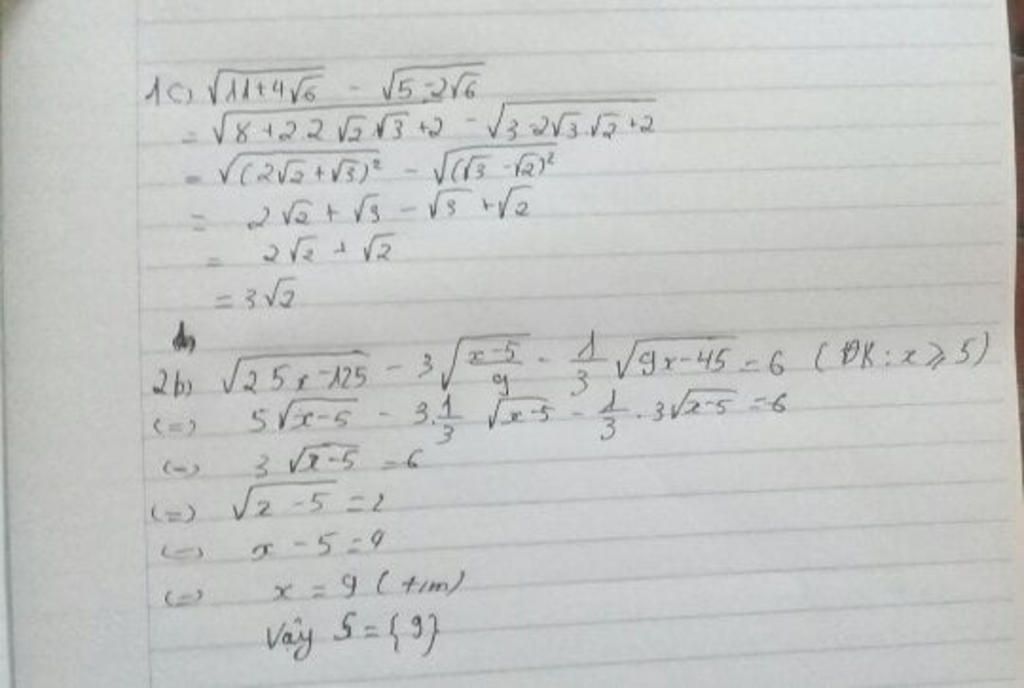 1c) √(11+4√6) - √(5-2√6)
= √(8+2.2√2.√3+2) - √(3-2√3.√2+2)
= √((2√2+√3)²) - √((√3-√2)²)
= 2√2 + √3 - √3 + √2
= 2√2 + √2
= 3√2
2b) √(25x-125) - 3√((x-5)/9) - 1/3 √(9x-45) = 6 (ĐK: x ≥ 5)
(=) 5√(x-5) - 3.1/3 √(x-5) - 1/3 . 3√(x-5) = 6
(=) 3√(x-5) = 6
(=) √(x-5) = 2
(=) x - 5 = 4
(=) x = 9 (t/m)
Vậy S = {9}